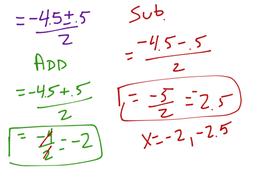 = -4.5 ± .5 / 2
ADD
= -4.5 + .5 / 2
= -4 / 2 = -2
Sub.
= -4.5 - .5 / 2
= -5 / 2 = -2.5
x = -2, -2.5